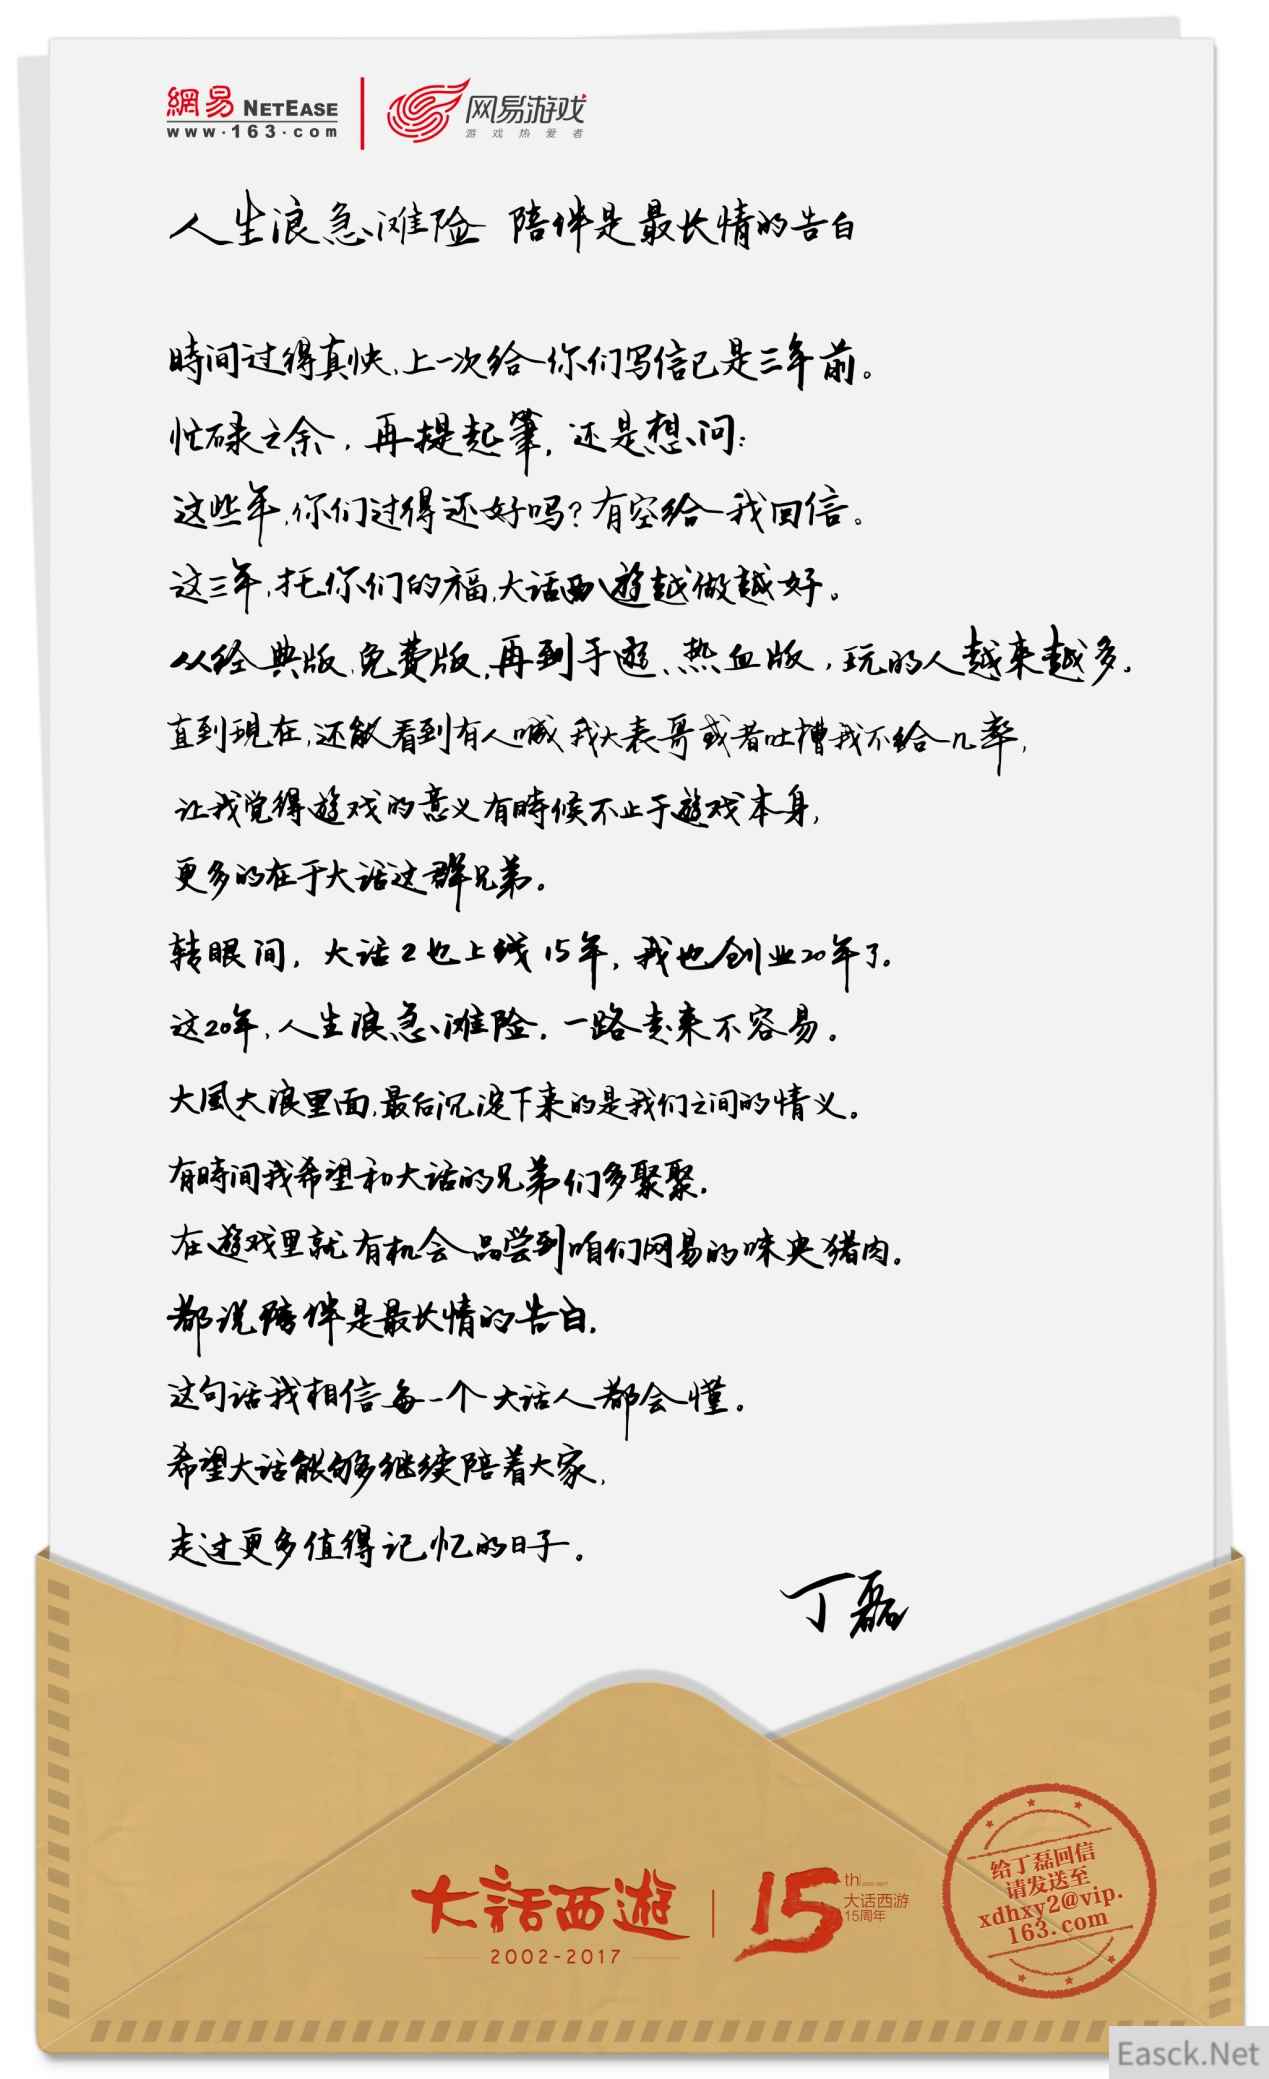 網易 NETEASE
www.163.com
网易游戏
游戏热爱者
人生浪急滩险 陪伴是最长情的告白
時间过得真快,上一次给你们写信已是三年前。
忙碌之余,再提起筆,还是想问:
这些年,你们过得还好吗?有空给我回信。
这三年,托你们的福,大话西遊越做越好。
从经典版、免费版,再到手遊、热血版,玩的人越来越多。
直到現在,还能看到有人喊我大表哥或者吐槽我不给几率,
让我觉得遊戏的意义有時候不止于遊戏本身,
更多的在于大话这群兄弟。
转眼间,大话2也上线15年,我也创业20年了。
这20年,人生浪急滩险,一路走来不容易。
大風大浪里面,最后沉淀下来的是我们之间的情义。
有時间我希望和大话的兄弟们多聚聚,
在遊戏里就有机会品尝到咱们网易的味央猪肉。
都说陪伴是最长情的告白,
这句话我相信每一个大话人都会懂。
希望大话能够继续陪着大家,
走过更多值得记忆的日子。
丁磊
大话西遊
2002-2017
15th
大话西游
15周年
给丁磊回信
请发送至
xdhxy2@vip.
163.com
Easck.Net